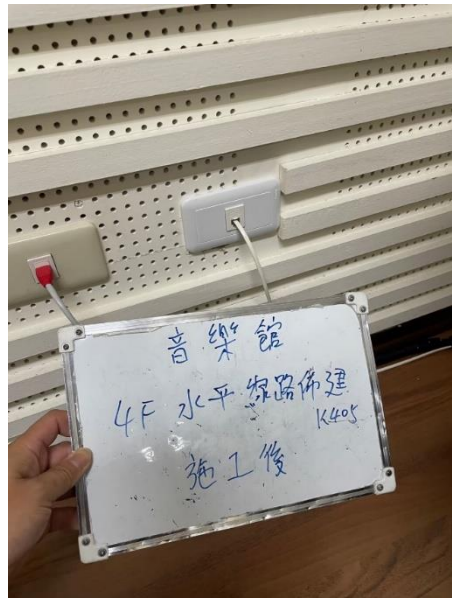 音樂館
4F 水平線路佈建
K405
施工後